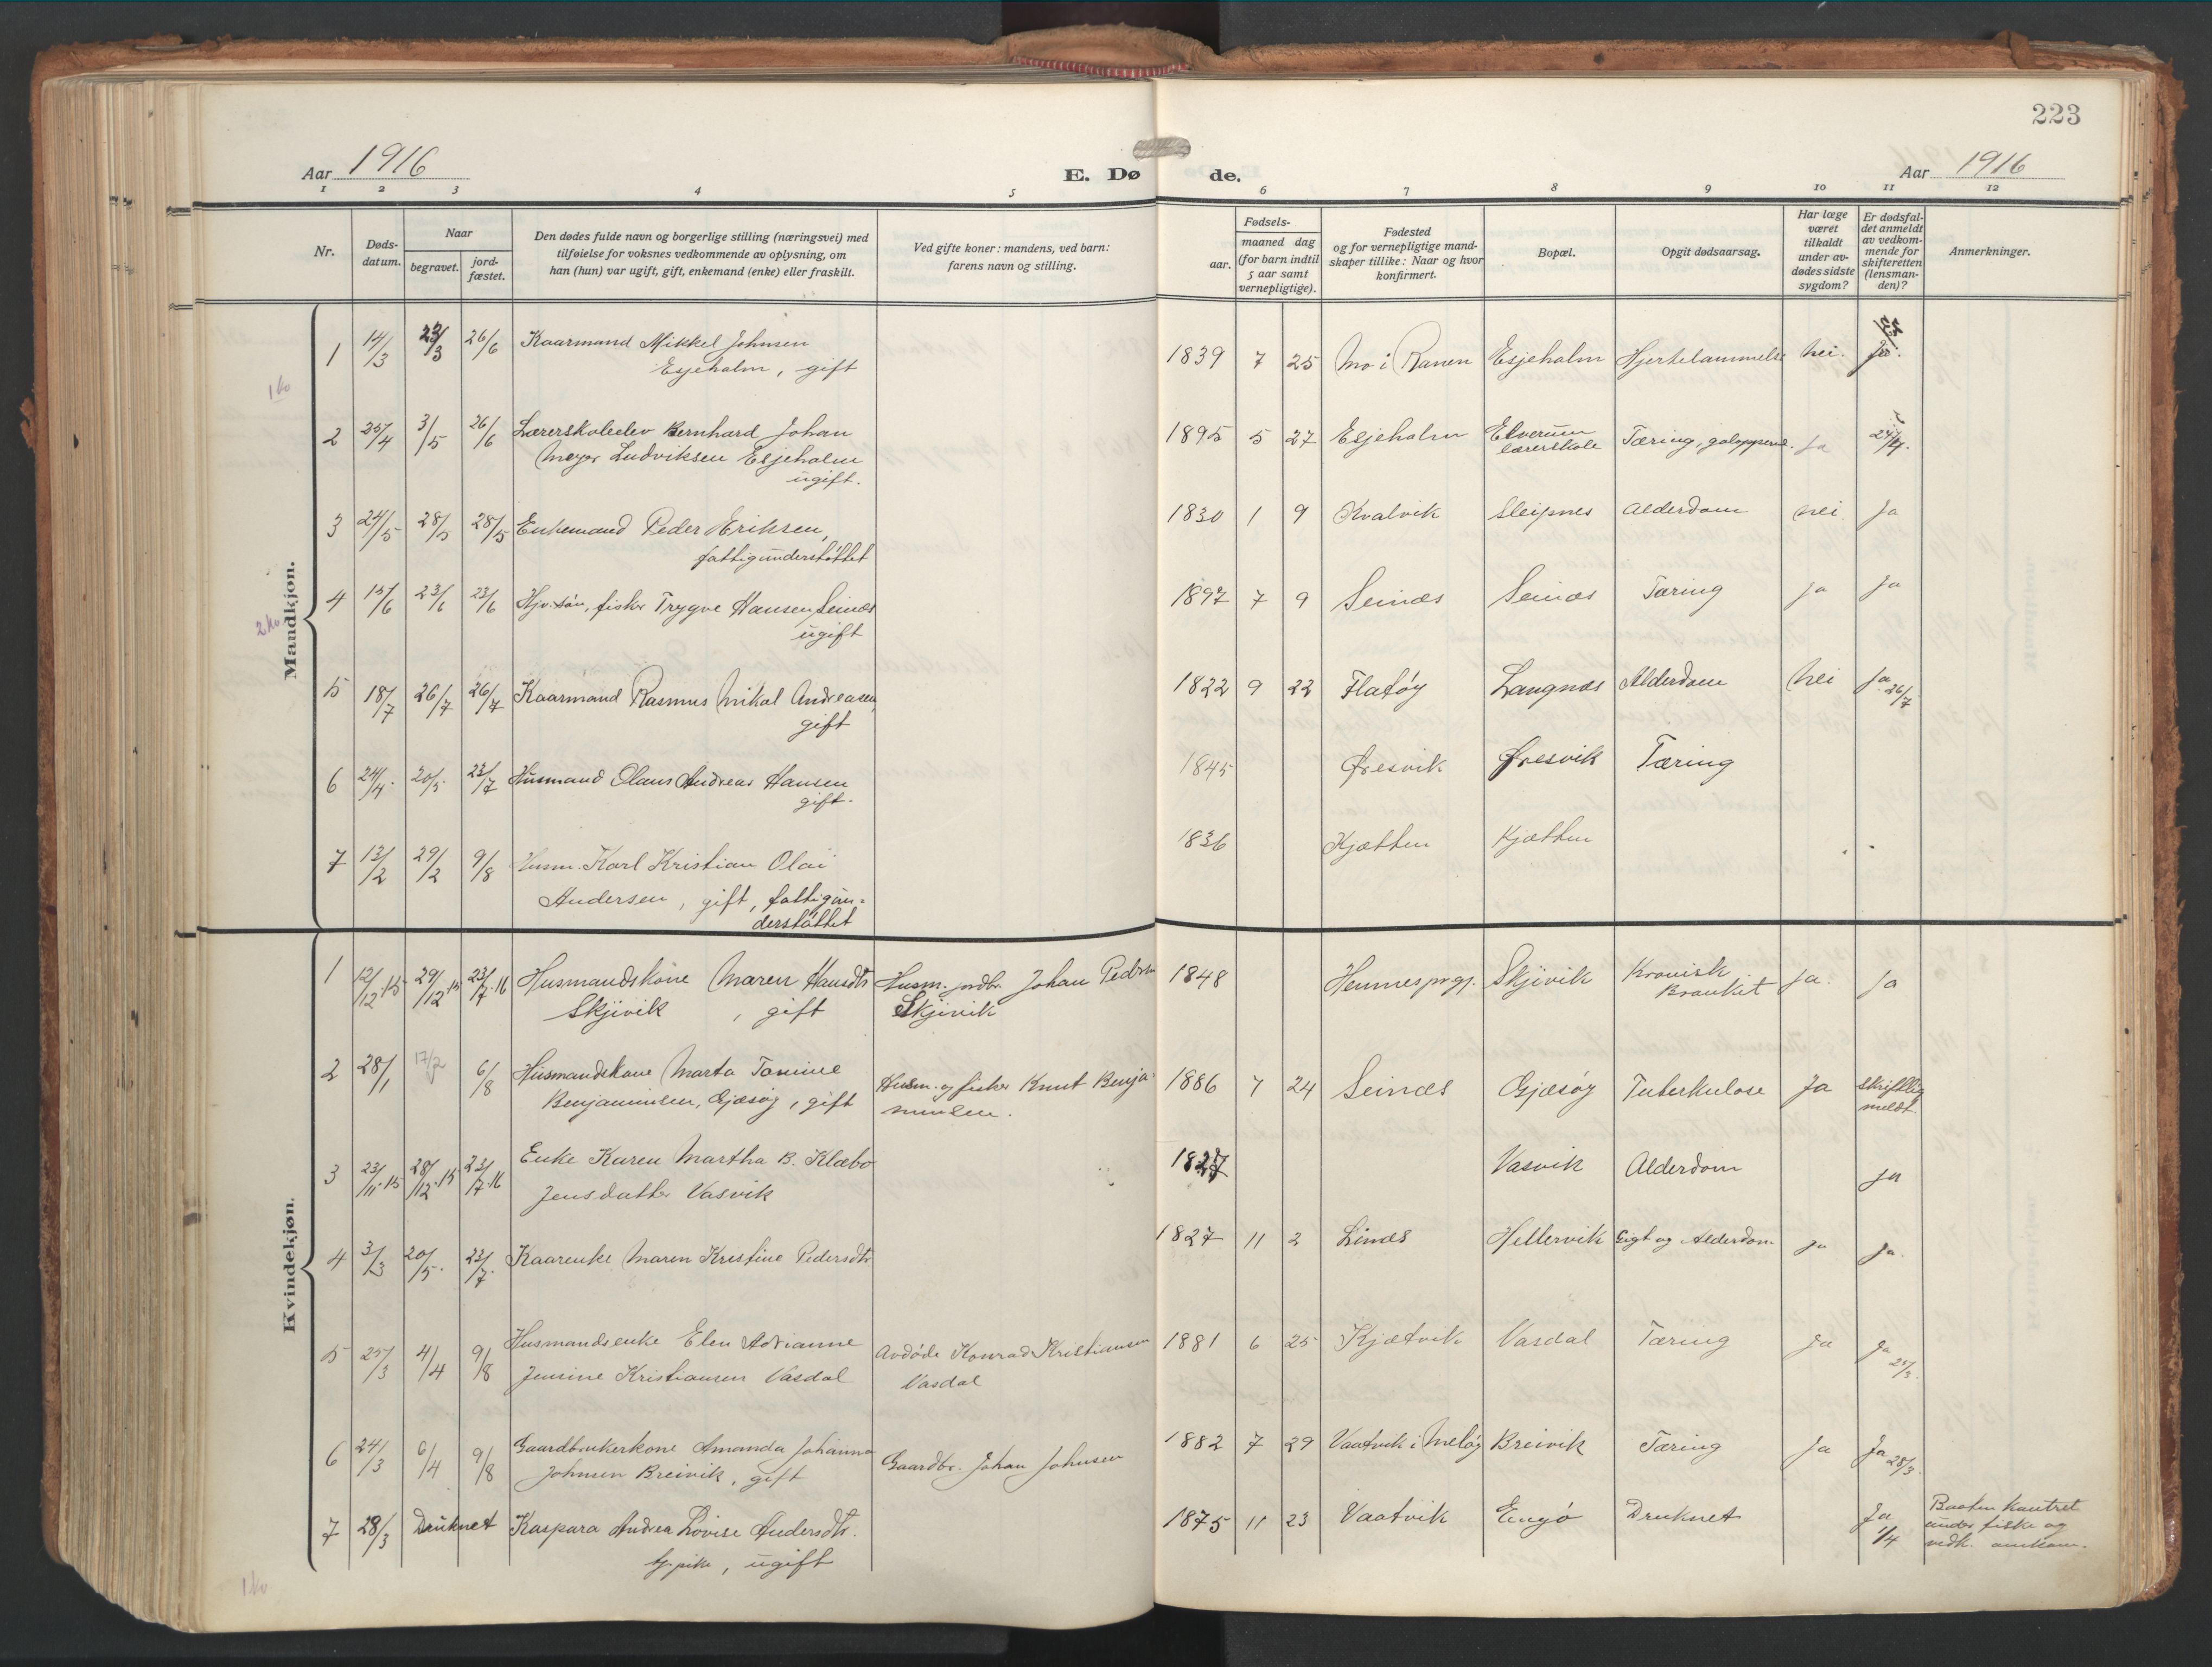 223
Aar 1916
E. Døde.
Aar 1916
1 2 3 4 5 6 7 8 9 10 11 12
Nr.
Døds-
datum.
Naar
begravet.
jord-
fæstet.
Den dødes fulde navn og borgerlige stilling (næringsvei) med
tilføielse for voksnes vedkommende av oplysning, om
han (hun) var ugift, gift, enkemand (enke) eller fraskilt.
Ved gifte koner: mandens, ved barn:
farens navn og stilling.
Fødsels-
aar.
maaned dag
(for barn indtil
5 aar samt
vernepligtige).
Fødested
og for vernepligtige mand-
skaper tillike: Naar og hvor
konfirmert.
Bopæl.
Opgit dødsaarsag.
Har læge
været
tilkaldt
under av-
dødes sidste
sygdom?
Er dødsfal-
det anmeldt
av vedkom-
mende for
skifteretten
(lensman-
den)?
Anmerkninger.
Mandkjøn.
1 14/3 23/3 26/6 Kaarmand Mikkel Johnsen 1839 7 25 Mo i Ranen Esjeholm Hjertelammelse nei. ja.
Esjeholm, gift
2 25/4 3/5 26/6 Lærerskoleelev Bernhard Johan 1895 5 27 Esjeholm Elverum Tæring, galopperende. ja 27/4.
Meyer Ludviksen Esjeholm lærerskole
ugift.
3 24/5 28/5 28/5 Enkemand Peder Eriksen, 1830 1 9 Kvalvik Sleipnes Alderdom nei Ja
fattigunderstøttet
4 15/6 23/6 23/6 Hjv. søn, fisker Trygve Hansen Seinæs 1897 7 9 Seinæs Seinæs Tæring ja ja
ugift
5 18/7 26/7 26/7 Kaarmand Rasmus Mikal Andreasen, 1822 9 22 Flatøy Langnæs Alderdom Nei Ja 26/7
gift
6 24/4. 20/5. 23/7 Husmand Olaus Andreas Hansen 1845 Øresvik Øresvik Tæring
gift.
7 13/2 29/2 9/8 Husm. Karl Kristian Olai 1836 Kjætten Kjætten
Andersen, gift, fattigun-
derstøttet
Kvindekjøn.
1 12/12.15 29/12.15 23/7.16 Husmandskone Maren Hansdtr Husm. jordbr. Johan Peders 1848 Hemnesprgj. Skjivik Kronisk ja. Ja
Skjivik, gift Skjivik Bronkit
2 28/1 17/2 6/8 Husmandskone Marta Tomine Husm. og fisker Knut Benja- 1886 7 24 Seinæs Gjæsøy Tuberkulose Ja skriftlig
Benjaminsen, Gjæsøy, gift minsen. meldt.
3 23/11.15 28/12.15 23/7.16 Enke Karen Martha B. Klæbo 1827 Vasvik Alderdom ja
Jensdatter Vasvik
4 3/3 20/5. 23/7. Kaarenke Maren Kristine Pedersdtr 1827 11 2 Linæs Hellervik Gigt og Alderdom ja ja.
5 25/3 4/4 9/8 Husmandsenke Elen Adrianne Avdøde Konrad Kristiansen 1881 6 25 Kjætvik Vasdal Tæring Ja Ja 28/3.
Jensine Kristiansen Vasdal Vasdal
6 24/3 6/4 9/8 Gaardbrukerkone Amanda Johanna Gaardbr. Johan Johnsen 1882 7 29 Vaatvik i Meløy Breivik Tæring Ja Ja 28/3.
Johnsen Breivik, gift
7 28/3 Druknet Kaspara Andrea Lovise Andersdtr. 1875 11 23 Vaatvik Engø Druknet Ja 1/4 Baaten kantret
pike, ugift under fiske og
vedk. omkom.